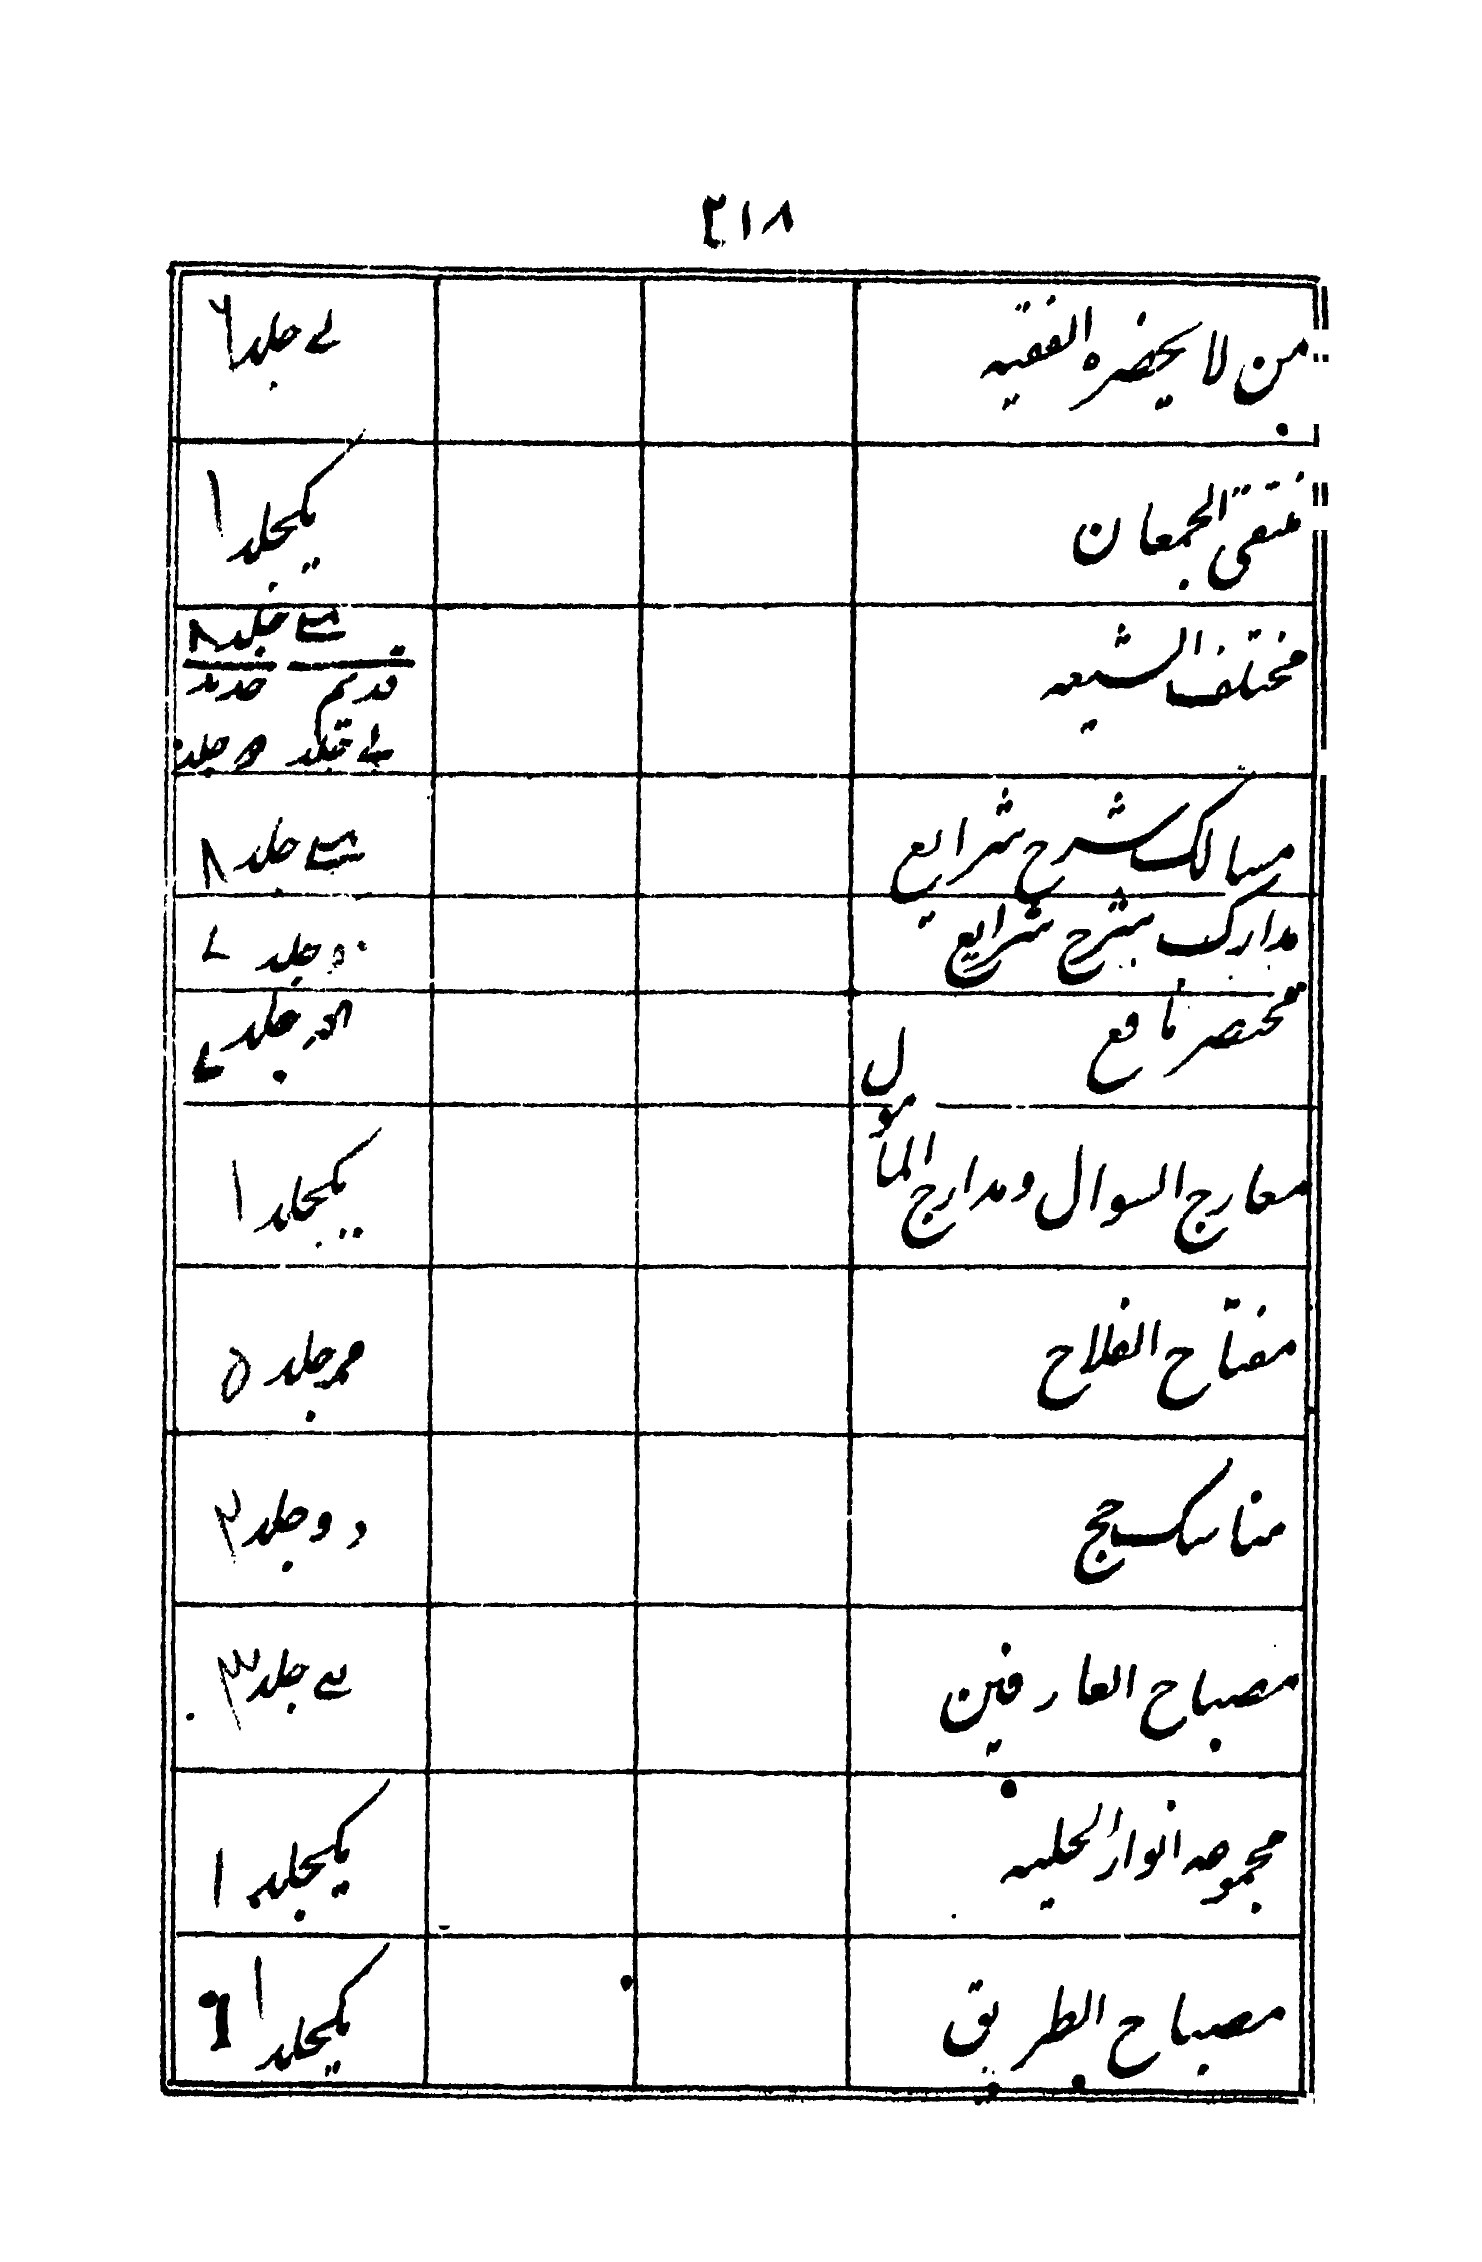 ٢١٨
من لا یحضره الفقیه جلد ٦
منتقی الجمعان یکجلد ١
مختلف الشیعه جلد ٨
قدیم جدید
جلد
مسالک شرح شرایع جلد ٨
مدارک شرح شرایع دو جلد ٢
مختصر نافع جلد
معارج السوال و مدارج المامول یکجلد ١
مفتاح الفلاح جلد ٥
مناسک حج دو جلد ٢
مصباح العارفین جلد ٣
مجموعه انوار الحلیه یکجلد ١
مصباح الطریق یکجلد ١